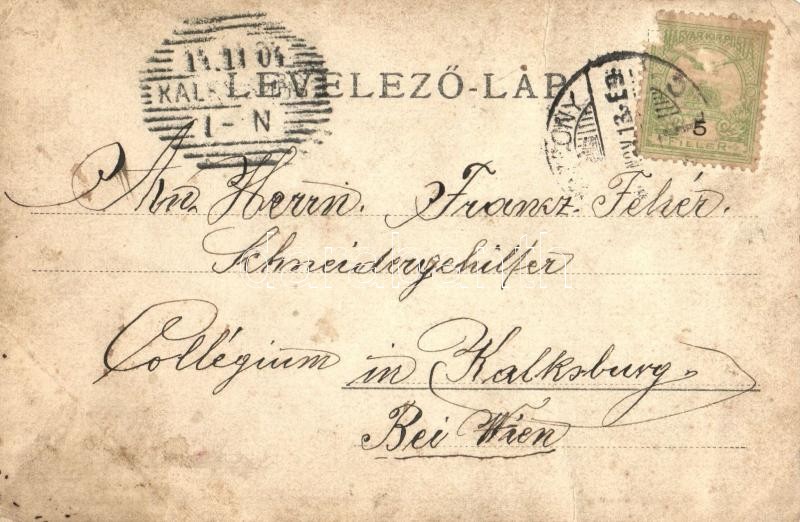 14.11 04
KALK
1-N
LEVELEZŐ-LAP
MAGYAR KIR. POSTA
5
FILLÉR
NOV. 13.
An Herrn. Franz Fehér.
Schneidergehilfer
Collégium in Kalksburg.
Bei Wien